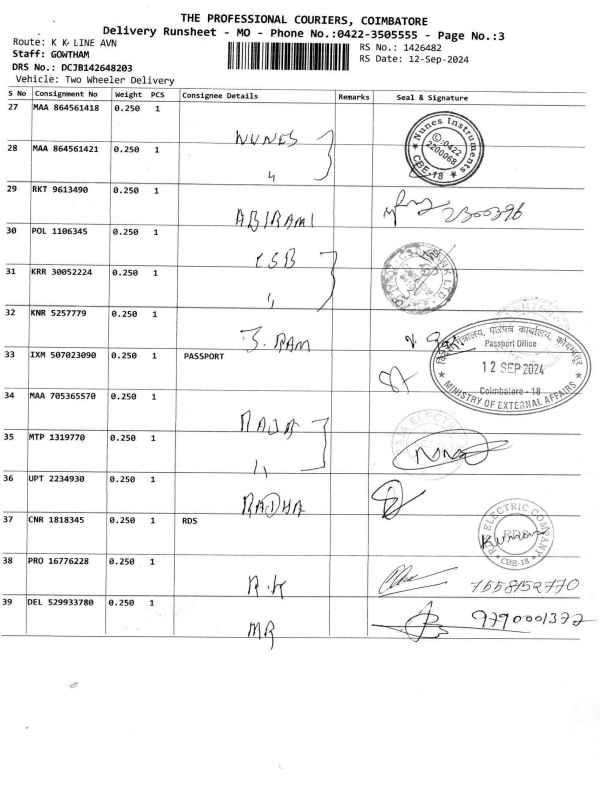 THE PROFESSIONAL COURIERS, COIMBATORE
Delivery Runsheet - MO - Phone No.:0422-3505555 - Page No.:3
Route: K K LINE AVN
RS No.: 1426482
Staff: GOWTHAM
RS Date: 12-Sep-2024
DRS No.: DCJB142648203
Vehicle: Two Wheeler Delivery
S No Consignment No Weight PCS Consignee Details Remarks Seal & Signature
27 MAA 864561418 0.250 1
NUNES
Nunes Instruments
✆:0422
2200068
★ CBE-18 ★
28 MAA 864561421 0.250 1
〃
29 RKT 9613490 0.250 1
ABIRAMI
2300396
30 POL 1106345 0.250 1
CSB
31 KRR 30052224 0.250 1
〃
32 KNR 5257779 0.250 1
J. RAM
33 IXM 507023090 0.250 1 PASSPORT
विदेश मंत्रालय, पारपत्र कार्यालय, कोयम्बतूर
Passport Office
12 SEP 2024
Coimbatore - 18
★ MINISTRY OF EXTERNAL AFFAIRS ★
34 MAA 705365570 0.250 1
RAJA
RAJA ELECTRIC
35 MTP 1319770 0.250 1
〃
36 UPT 2234930 0.250 1
RADHA
37 CNR 1818345 0.250 1 RDS
ELECTRIC COMPANY
RDS
★ CBE-18 ★
38 PRO 16776228 0.250 1
R.K
7558152770
39 DEL 529933780 0.250 1
MR
9790001372